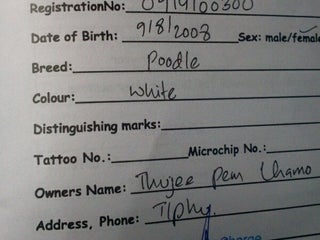 RegistrationNo: 0919100300
Date of Birth: 9/8/2008 Sex: male/female
Breed: Poodle
Colour: white
Distinguishing marks:
Tattoo No.: Microchip No.:
Owners Name: Thujee Pem Lhamo
Address, Phone: TIphy.